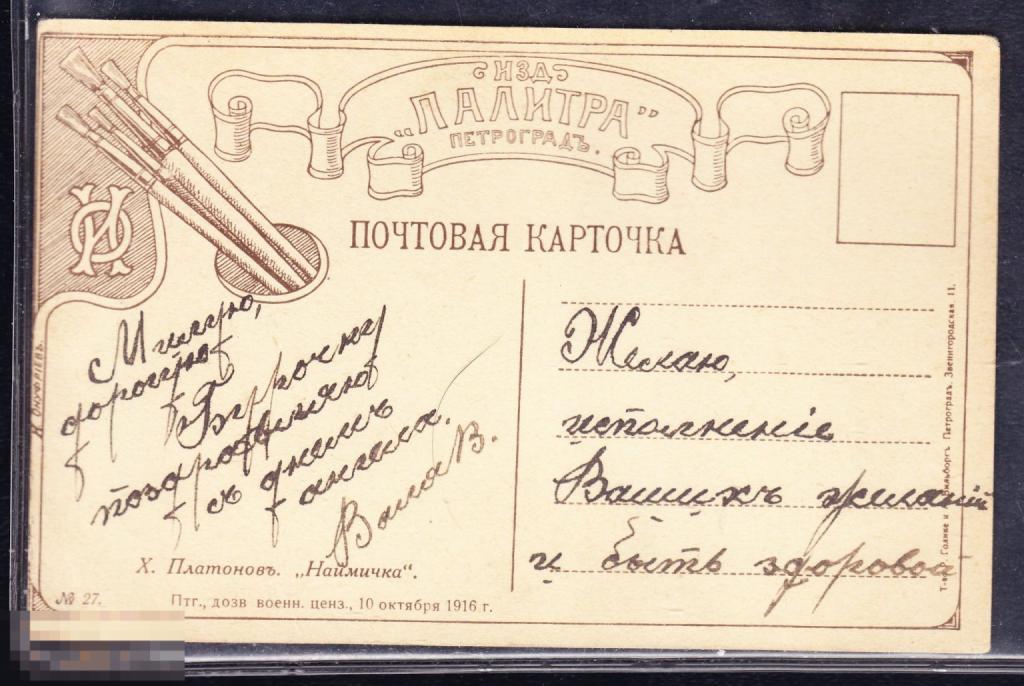 ИЗД.
„ПАЛИТРА”
ПЕТРОГРАДЪ.
ПОЧТОВАЯ КАРТОЧКА
Милую,
дорогую
Бурочку
поздравляю
съ днемъ
ангела.
Валя В.
Желаю,
исполненіе
Вашихъ желаній
и быть здоровой
Х. Платоновъ. „Наймичка“.
№ 27.
Птг., дозв военн. ценз., 10 октября 1916 г.
Н. ОНУФРІЕВЪ.
Т-во Р. Голике и А. Вильборгъ. Петроградъ. Звенигородская, 11.